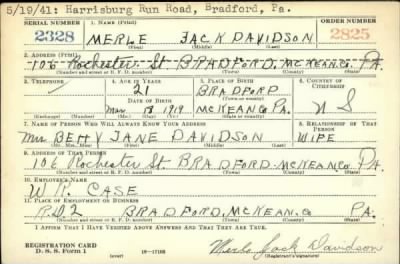 5/19/41: Harrisburg Run Road, Bradford, Pa.
SERIAL NUMBER 1. NAME (Print) ORDER NUMBER
2328 MERLE JACK DAVIDSON 2825
(First) (Middle) (Last)
2. ADDRESS (Print)
106 Rochester St. BRADFORD, MCKEAN Co. PA.
(Number and street or R. F. D. number) (Town) (County) (State)
3. TELEPHONE 4. AGE IN YEARS 5. PLACE OF BIRTH 6. COUNTRY OF CITIZENSHIP
21 BRADFORD
DATE OF BIRTH (Town or county)
1919 McKEAN Co. PA. U S
(Exchange) (Number) (Mo.) (Day) (Yr.) (State or country)
7. NAME OF PERSON WHO WILL ALWAYS KNOW YOUR ADDRESS 8. RELATIONSHIP OF THAT PERSON
Mrs BETTY JANE DAVIDSON WIFE
(Mr., Mrs., Miss) (First) (Middle) (Last)
9. ADDRESS OF THAT PERSON
106 Rochester St. BRADFORD. MCKEAN Co. PA.
(Number and street or R. F. D. number) (Town) (County) (State)
10. EMPLOYER'S NAME
W. R. CASE
11. PLACE OF EMPLOYMENT OR BUSINESS
R.D 2 BRADFORD, MCKEAN Co. PA.
(Number and street or R. F. D. number) (Town) (County) (State)
I AFFIRM THAT I HAVE VERIFIED ABOVE ANSWERS AND THAT THEY ARE TRUE.
REGISTRATION CARD
D. S. S. Form 1 16—17105 Merle Jack Davidson
(Registrant's signature)